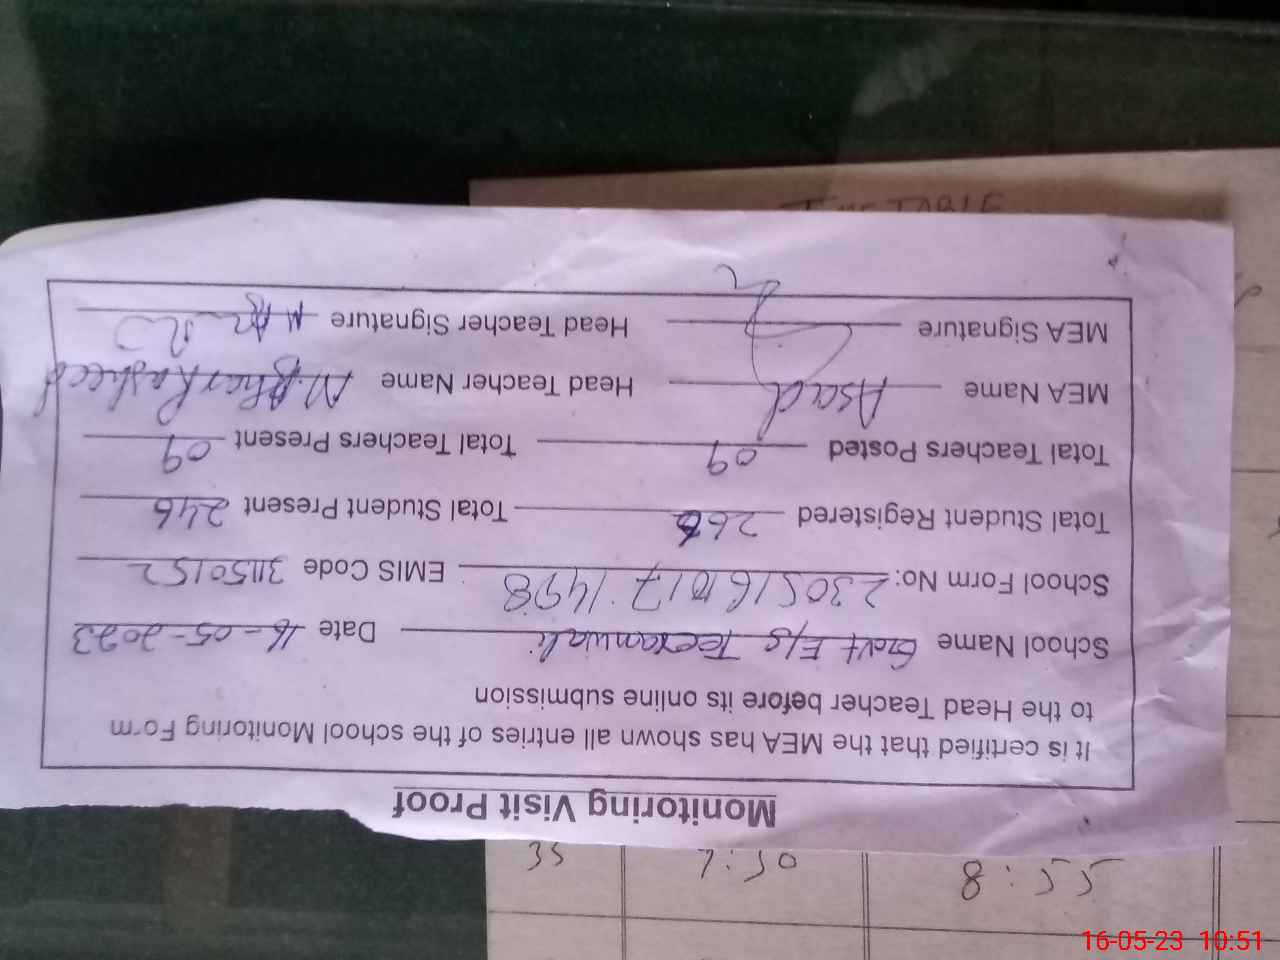 Monitoring Visit Proof
It is certified that the MEA has shown all entries of the school Monitoring Form
to the Head Teacher before its online submission
School Name Govt E/S Teeranwali Date 16-05-2023
School Form No: 2305161017 1498 EMIS Code 31150152
Total Student Registered 266 Total Student Present 246
Total Teachers Posted 09 Total Teachers Present 09
MEA Name Asad Head Teacher Name M. Azhar Rasheed
MEA Signature Head Teacher Signature
TIME TABLE
16-05-23 10:51